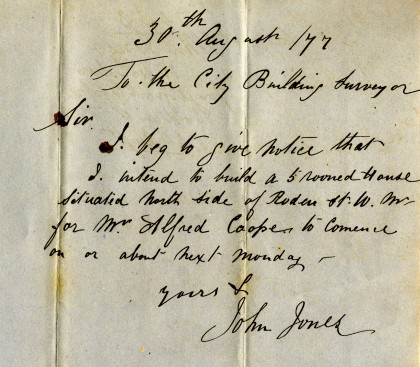 30.th August /77
To the City Building Surveyor
Sir.
I beg to give notice that
I. intend to build a 5 roomed House
situated North Side of Roden St W. M
for Mr Alfred Cooper to Comence
on or about next Monday –
yours &
John Jones